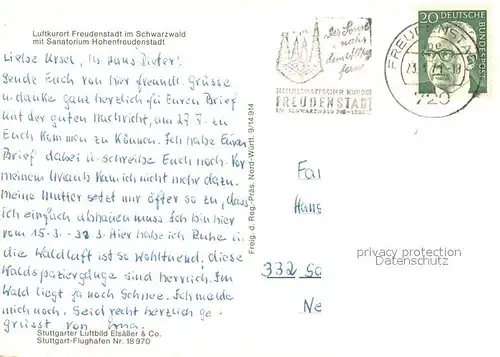 Luftkurort Freudenstadt im Schwarzwald
mit Sanatorium Hohenfreudenstadt.
Liebe Ursel, lb. Hans-Dieter!
Sende Euch von hier freundl. Grüsse
u. danke ganz herzlich für Euren Brief
mit der guten Nachricht, am 27.7. zu
Euch kommen zu können. Ich habe Euren
Brief dabei u. schreibe Euch noch. Vor
meinem Urlaub kam ich nicht mehr dazu.
Meine Mutter setzt mir öfter so zu, dass
ich einfach abhauen muss. Ich bin hier
vom 15.3. - 3. Hier habe ich Ruhe u.
die Waldluft ist so wohltuend, diese
Waldspaziergänge sind herrlich. Im
Wald liegt ja noch Schnee. Ich melde
mich noch. Seid recht herzlich ge-
grüsst von Erna.
Stuttgarter Luftbild Elsäßer & Co.
Stuttgart-Flughafen Nr. 18 970
Freig. d. Reg.-Präs. Nord-Württ. 9/14 914
der Sonne
näher
dem Alltag
fern
HEILKLIMATISCHER KURORT
FREUDENSTADT
IM SCHWARZWALD
FREUDENSTADT
23. 71-18
729
20 DEUTSCHE
BUNDESPOST
Fa
Hans
332 Sa
Ne
privacy protection
Datenschutz